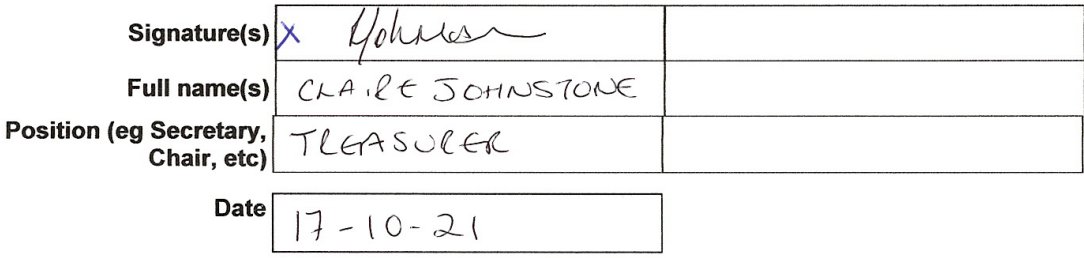 Signature(s) X
Full name(s) CLAIRE JOHNSTONE
Position (eg Secretary,
Chair, etc) TREASURER
Date 17-10-21